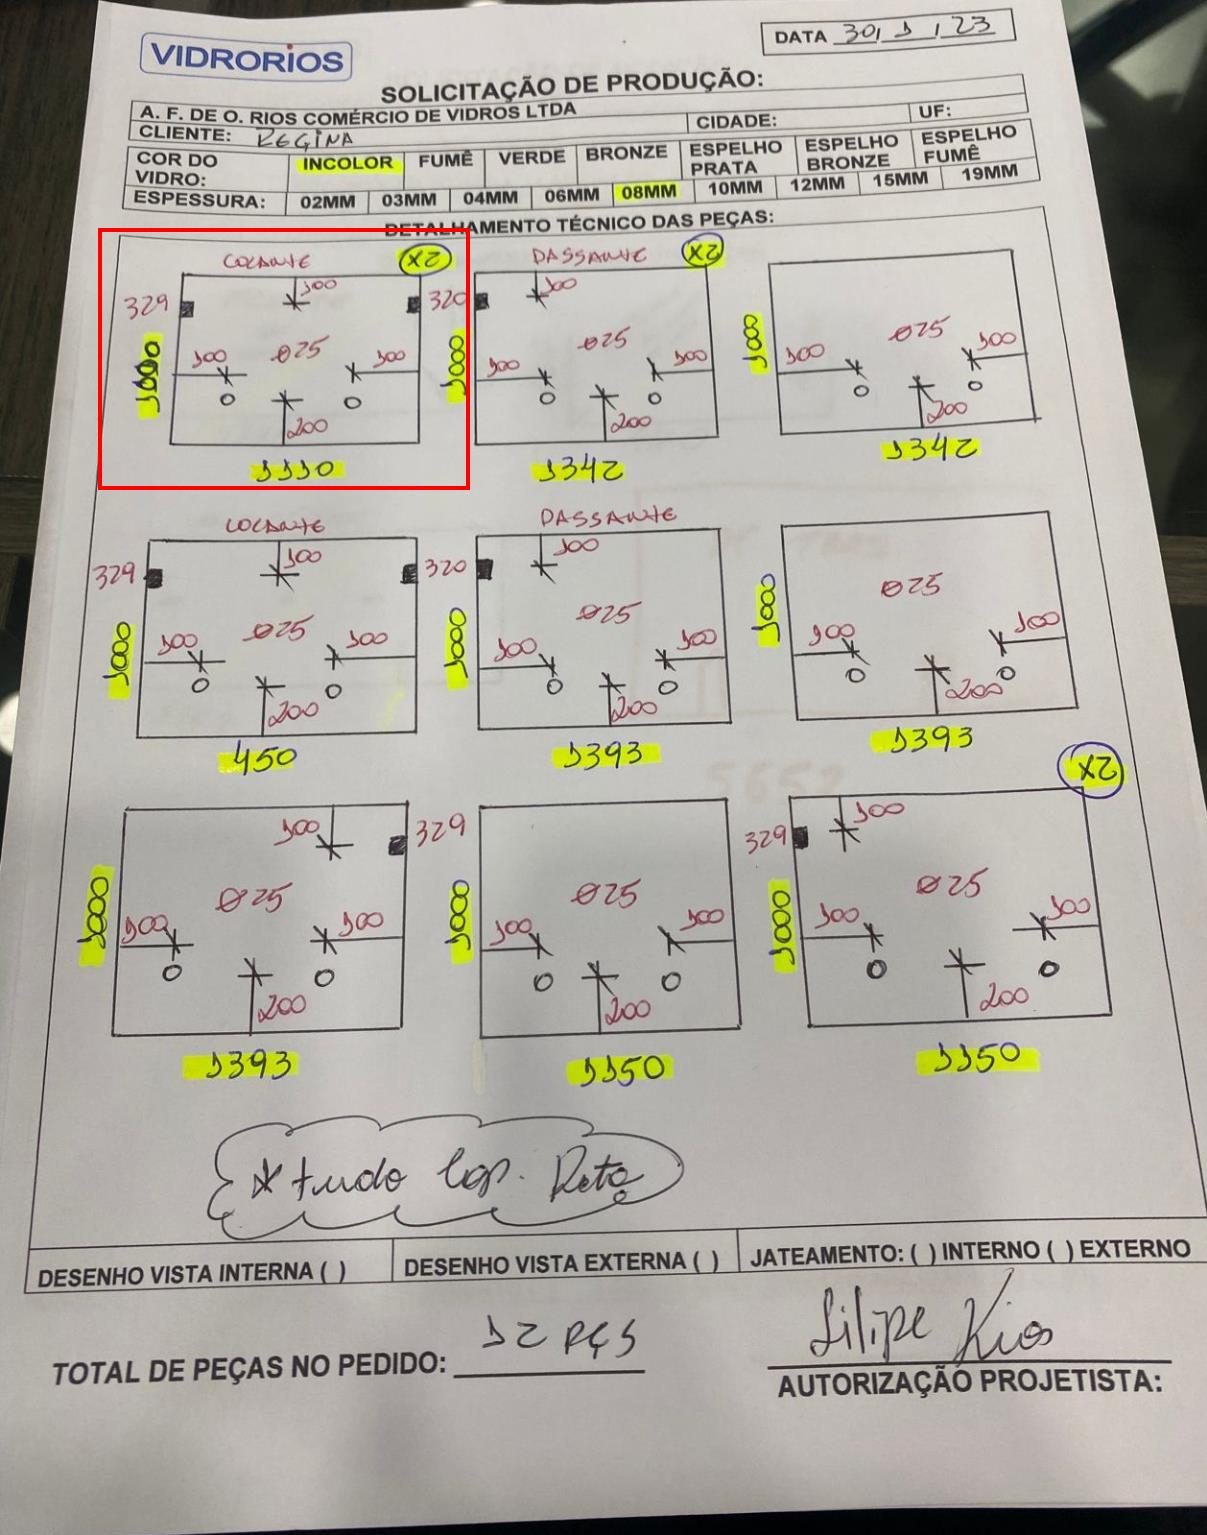 VIDRORIOS
DATA 30/1/23
SOLICITAÇÃO DE PRODUÇÃO:
A. F. DE O. RIOS COMÉRCIO DE VIDROS LTDA
CLIENTE: REGINA CIDADE: UF:
COR DO VIDRO: INCOLOR FUMÊ VERDE BRONZE ESPELHO PRATA ESPELHO BRONZE ESPELHO FUMÊ
ESPESSURA: 02MM 03MM 04MM 06MM 08MM 10MM 12MM 15MM 19MM
DETALHAMENTO TÉCNICO DAS PEÇAS:
COLANTE X2
329
100
1000
100
Ø25
100
200
1110
PASSANTE X2
320
100
1000
100
Ø25
100
200
1342
1000
100
Ø25
100
200
1342
COLANTE
329
100
1000
100
Ø25
100
200
450
PASSANTE
320
100
1000
100
Ø25
100
200
1393
1000
100
Ø25
100
200
1393
100
329
1000
100
Ø25
100
200
1393
1000
100
Ø25
100
200
1150
X2
329
100
1000
100
Ø25
100
200
1150
* tudo Lap. Reto
DESENHO VISTA INTERNA ( ) DESENHO VISTA EXTERNA ( ) JATEAMENTO: ( ) INTERNO ( ) EXTERNO
TOTAL DE PEÇAS NO PEDIDO: 12 PÇS
Filipe Rios
AUTORIZAÇÃO PROJETISTA: